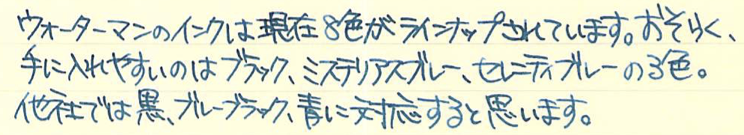 ウォーターマンのインクは現在8色がラインナップされています。おそらく、
手に入れやすいのはブラック、ミステリアスブルー、セレニティブルーの3色。
他社では黒、ブルーブラック、青に対応すると思います。